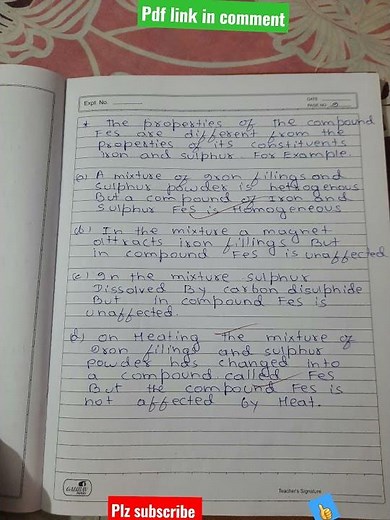 Pdf link in comment
Expt. No.
DATE
PAGE NO.
* The properties of the compound
Fes are different from the
properties of its constituents
Iron and sulphur. For Example.
(a) A mixture of iron filings and
Sulphur powder is hetrogenous
But a compound of Iron and
Sulphur FeS is Homogeneous
(b) In the mixture a magnet
attracts iron fillings But
in compound FeS is unaffected
(c) In the mixture sulphur
Dissolved By carbon disulphide
But in compound FeS is
unaffected.
d) on Heating the mixture of
Iron filings and sulphur
powder has changed into
a compound called FeS
But the compound FeS is
not affected by Heat.
GAURAV
Teacher's Signature
Plz subscribe